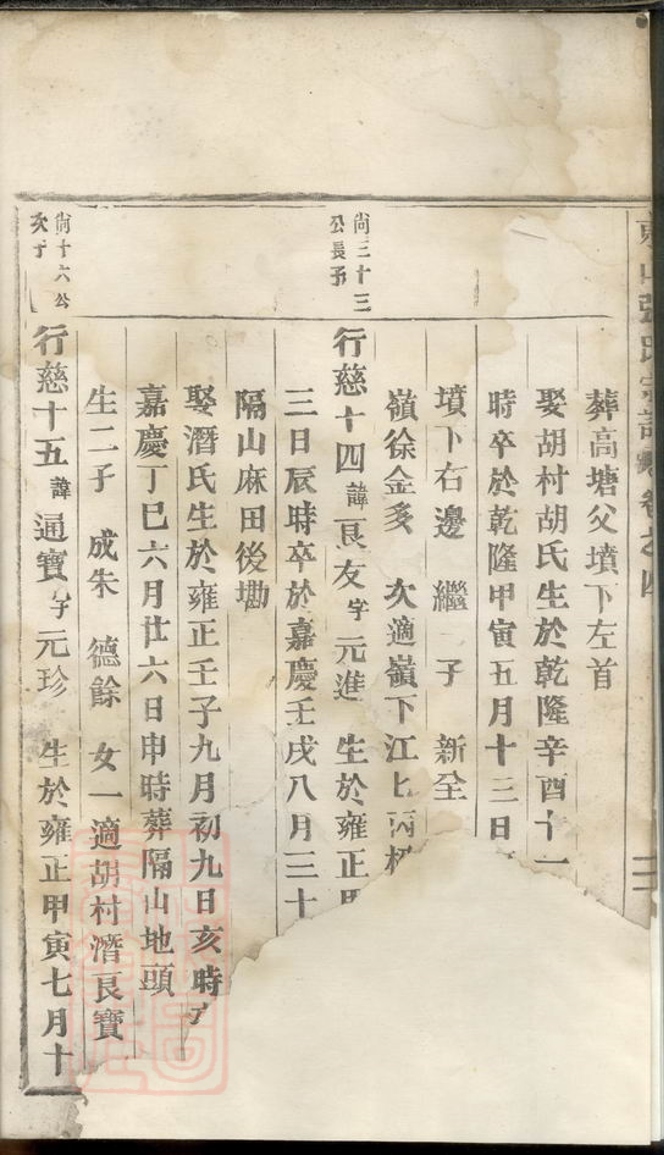 葬高塘父墳下左首
娶胡村胡氏生於乾隆辛酉十一
時卒於乾隆甲寅五月十三日
墳下右邊 繼子 新全
嶺徐金多 次適嶺下江
尚三十三公長子
行慈十四諱良友字元進 生於雍正
三日辰時卒於嘉慶壬戌八月三十
隔山麻田後塝
娶潛氏生於雍正壬子九月初九日亥時
嘉慶丁巳六月廿六日申時葬隔山地頭
生二子 成朱 德餘 女一適胡村潛良寶
尚十六公次子
行慈十五諱通寶字元珍 生於雍正甲寅七月十